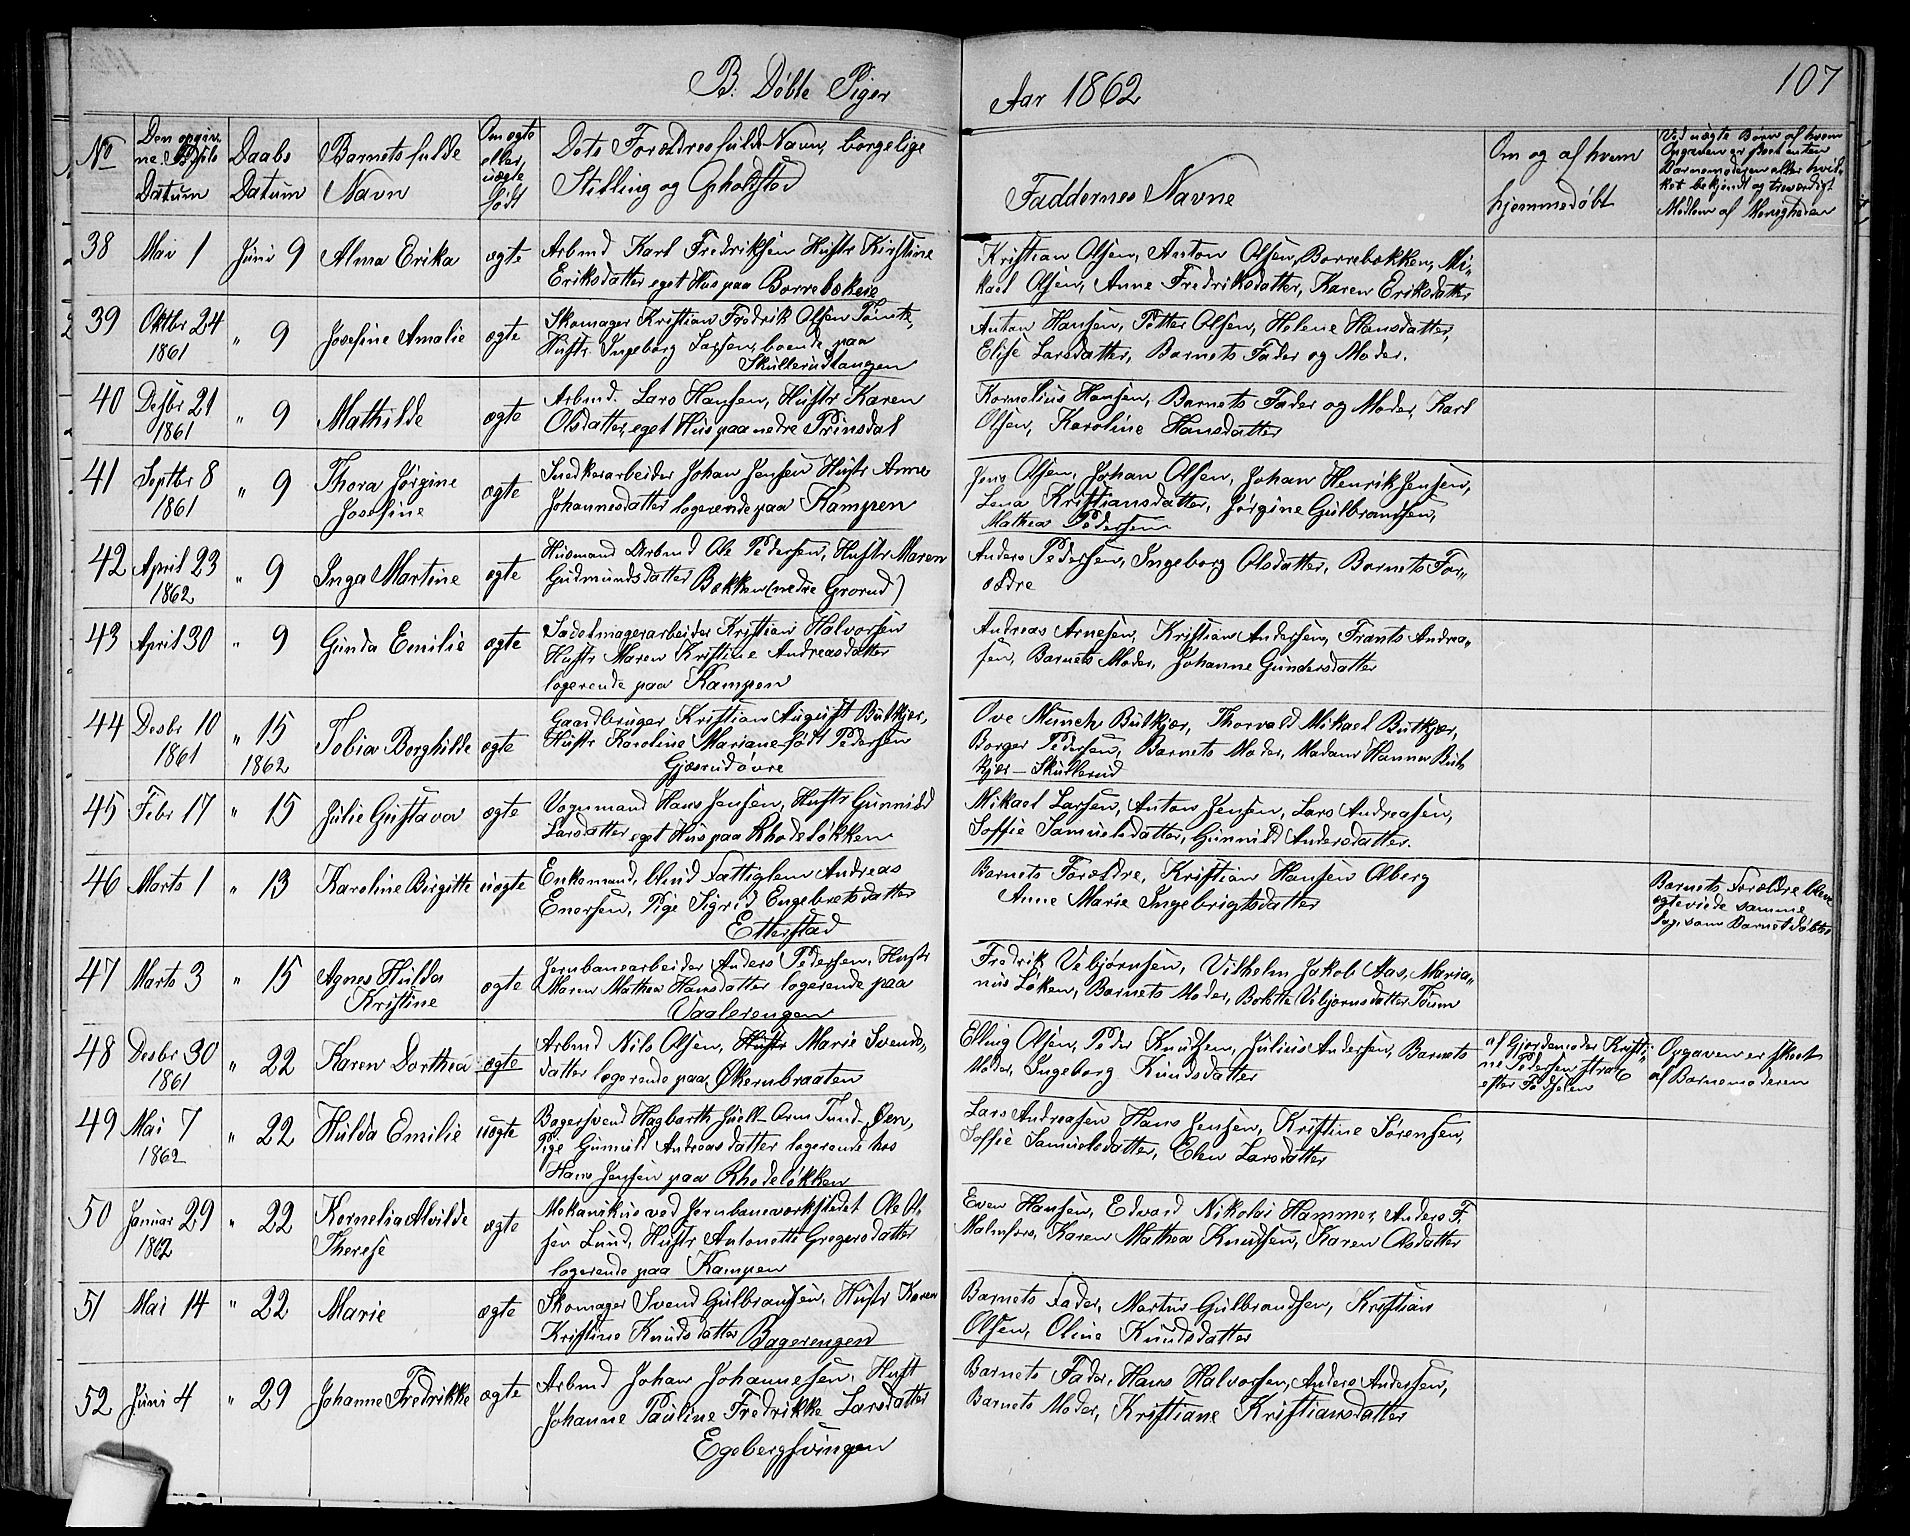 B. Døbte Piger
Aar 1862
107
No
Den opgiv-
ne Fødsels
Datum
Daabs
Datum
Barnets fulde
Navn
Om ægte
eller
uægte
født
Dets Forældres fulde Navn, borgelige
Stilling og Opholdsted
Faddernes Navne
Om og af hvem
hjemmedøbt
Ved uægte Børn af hvem
Opgaven er skeet enten
Barnemoderen eller hvil-
ket bekjendt og troværdigt
Medlem af Menigheden
38 Mai 1 Juni 9 Alma Erika ægte
Arbmd Karl Fredriksen Hustr Kirstine
Eriksdatter eget Hus paa Borrebækene
Kristian Olsen, Anton Olsen, Borrebækken, Mi-
kael Olsen, Anne Fredriksdatter, Karen Eriksdatter
39 Oktbr 24 1861 " 9 Josefine Amalie ægte
Skomager Kristian Fredrik Olsen
Hustr. Ingeborg Larsen, boende paa
Skullerudtangen
Anton Hansen, Petter Olsen, Helene Hansdatter,
Elise Larsdatter, Barnets Fader og Moder.
40 Desbr 21 1861 " 9 Mathilde ægte
Arbmd. Lars Hansen, Hustr Karen
Olsdatter, eget Hus paa nedre Prinsdal
Kornelius Hansen, Barnets Fader og Moder, Karl
Olsen, Karoline Hansdatter
41 Septbr 8 1861 " 9 Thora Jørgine
Josefine ægte
Snedkerarbeider Johan Jensen Hustr Anne
Johannesdatter logerende paa Kampen
Jens Olsen, Johan Olsen, Johan Henrik Jensen,
Lena Kristiansdatter, Jørgine Gulbrandsen,
Mathea Pedersen
42 April 23 1862 " 9 Inga Martine ægte
Husmand Arbmd Ole Pedersen, Hustr Maren
Gudmundsdatter Bækken (nedre Grorud)
Anders Pedersen, Ingeborg Olsdatter, Barnets For-
ældre
43 April 30 " 9 Gunda Emilie ægte
Sadelmagerarbeider Kristian Halvorsen
Hustr Maren Kristine Andreasdatter
logerende paa Kampen
Andreas Arnesen, Kristian Andersen, Frants Andrea-
sen, Barnets Moder, Johanne Gundersdatter
44 Desbr 10 1861 " 15 1862 Tobia Borghilde ægte
Gaardbruger Kristian August Butkjær,
Hustr Karoline Mariane født Pedersen
Gjøsrud øvre
Ove Munch Butkjær, Thorvald Mikael Butkjær,
Borger Pedersen, Barnets Moder, Madam Hanna But
kjær – Skullerud
45 Febr 17 " 15 Julie Gustava ægte
Vognmand Hans Jensen, Hustr Gunnild
Larsdatter eget Hus paa Rhodeløkken
Mikael Larsen, Anton Jensen, Lars Andreasen,
Soffie Samuelsdatter, Gunnild Andersdatter.
46 Marts 1 " 13 Karoline Birgitte uægte
Enkemand, blind Fattiglem Andreas
Enersen, Pige Sigrid Engebretsdatter
Etterstad
Barnets Forældre, Kristian Hansen Aberg
Anne Marie Ingebrigtsdatter
Barnets Forældre bleve
ægteviede samme
Dag, som Barnet døbtes
47 Marts 3 " 15 Agnes Hulda
Kristine ægte
Jernbanearbeider Anders Pedersen, Hustr
Maren Mathea Hansdatter logerende paa
Vaalerengen
Fredrik Vebjørnsen, Vilhelm Jakob Aas, Maria-
nus Løken, Barnets Moder, Bolette Vebjørnsdatter
48 Desbr 30 1861 " 22 Karen Dorthea ægte
Arbmd Nils Olsen, Hustr Marie Svends-
datter logerende paa Økernbraaten
Elling Olsen, Peder Knudsen, Julius Andersen, Barnets
Moder, Ingeborg Knudsdatter
af Gjordemoder Kristi-
ne Pedersen strax
efter Fødselen
Opgaven er skeet
af Barnemoderen
49 Mai 7 1862 " 22 Hulda Emilie uægte
Bagersvend Hagbarth Juell-
Pige Gunnild Andreasdatter logerende hos
Hans Jensen paa Rhodeløkken
Lars Andreasen Hans Jensen, Kristine Sørensen,
Soffie Samuelsdatter, Elen Larsdatter
50 Januar 29 1862 " 22 Kornelia Alvilde
Therese ægte
Mekanikus ved Jernbaneværkstedet Ole Ol-
sen Lund, Hustr Antonette Gregersdatter
logerende paa Kampen
Even Hansen, Edvard Nikolai Hammer, Anders F.
Malmfors, Karen Mathea Knudsen, Karen Olsdatter
51 Mai 14 " 22 Marie ægte
Skomager Svend Gulbransen, Hustr Karen
Kristine Knudsdatter Bagerengen
Barnets Fader, Martin Gulbrandsen, Kristian
Olsen, Oline Knudsdatter
52 Juni 4 " 29 Johanne Fredrikke ægte
Arbmd Johan Johannesen, Hust
Johanne Pauline Fredrikke Larsdatter
Egebergsvingen
Barnets Fader, Hans Halvorsen, Anders Andersen,
Barnets Moder, Kristiane Kristiansdatter